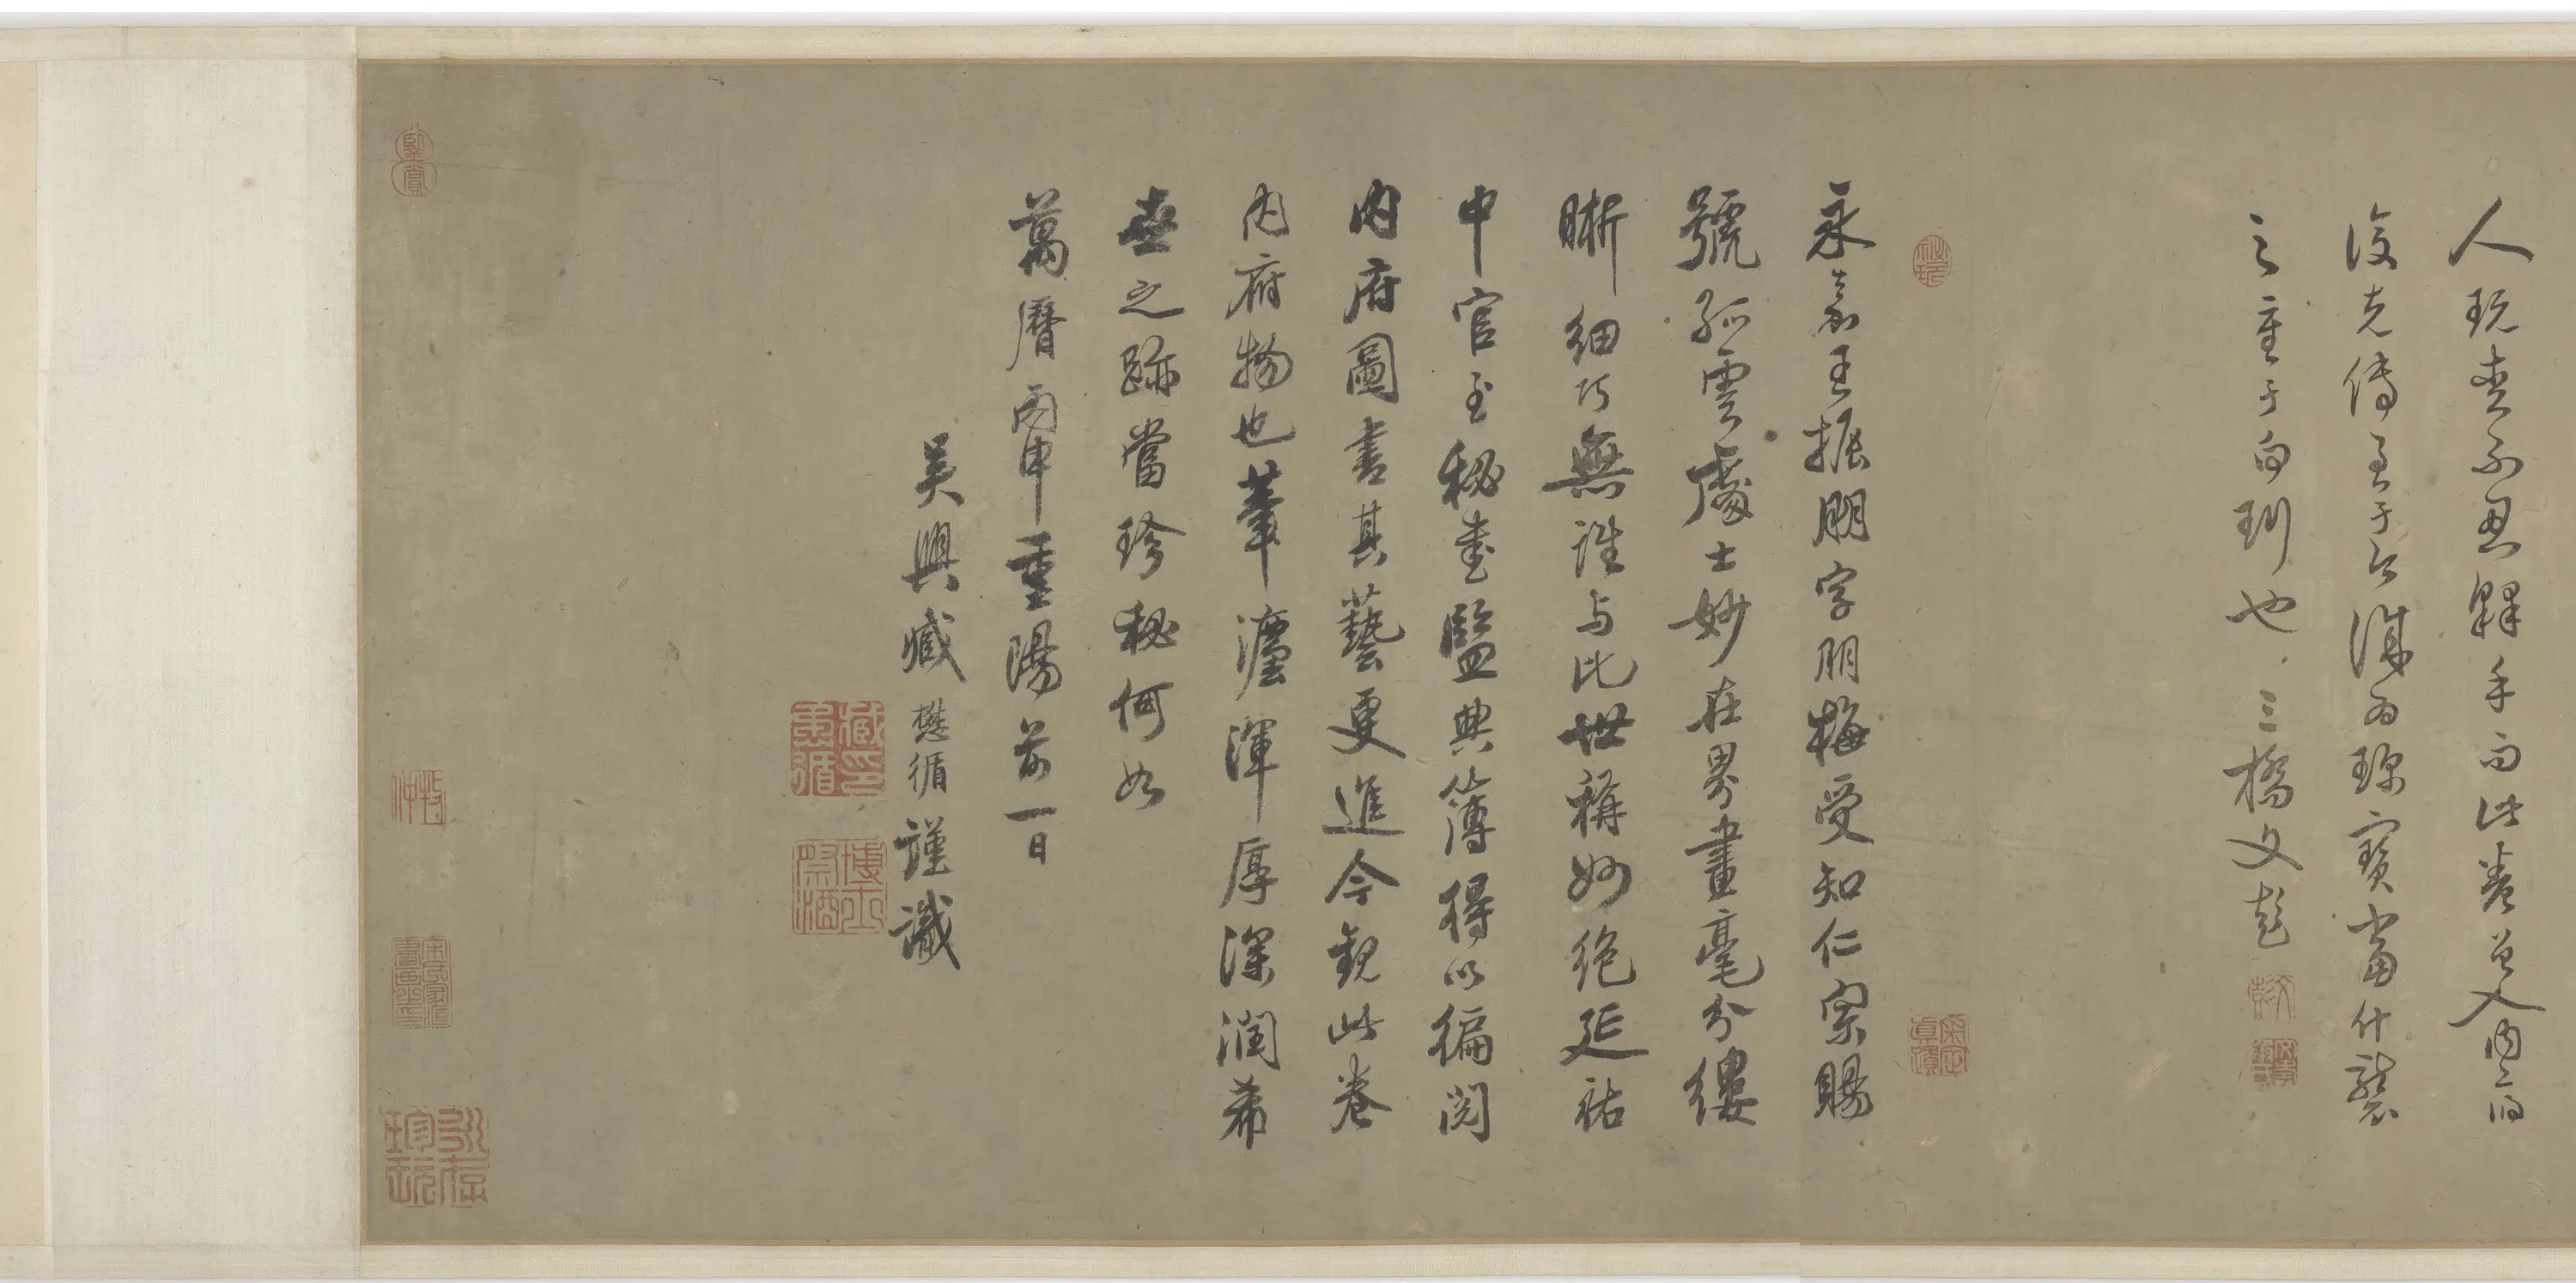 人玩索不忍釋手而此卷曾入內府
後克傳至于今誠為珍寶當什襲
之重于白璧也三橋文彭
永嘉王振朋字朋梅受知仁宗賜
號孤雲處士妙在界畫毫分縷
晰細巧無誰与比世稱妙絕延祐
中官至秘書監典簿得以徧閱
內府圖書其藝更進今觀此卷
內府物也筆灋渾厚深潤希
世之跡當珍秘何如
萬曆丙申重陽前一日
吳興臧懋循謹識
臧印懋循
博士祭酒
鑒賞